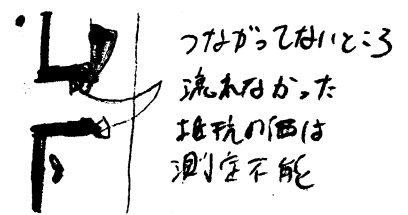 つながってないところ
流れなかった
抵抗の価は
測定不能